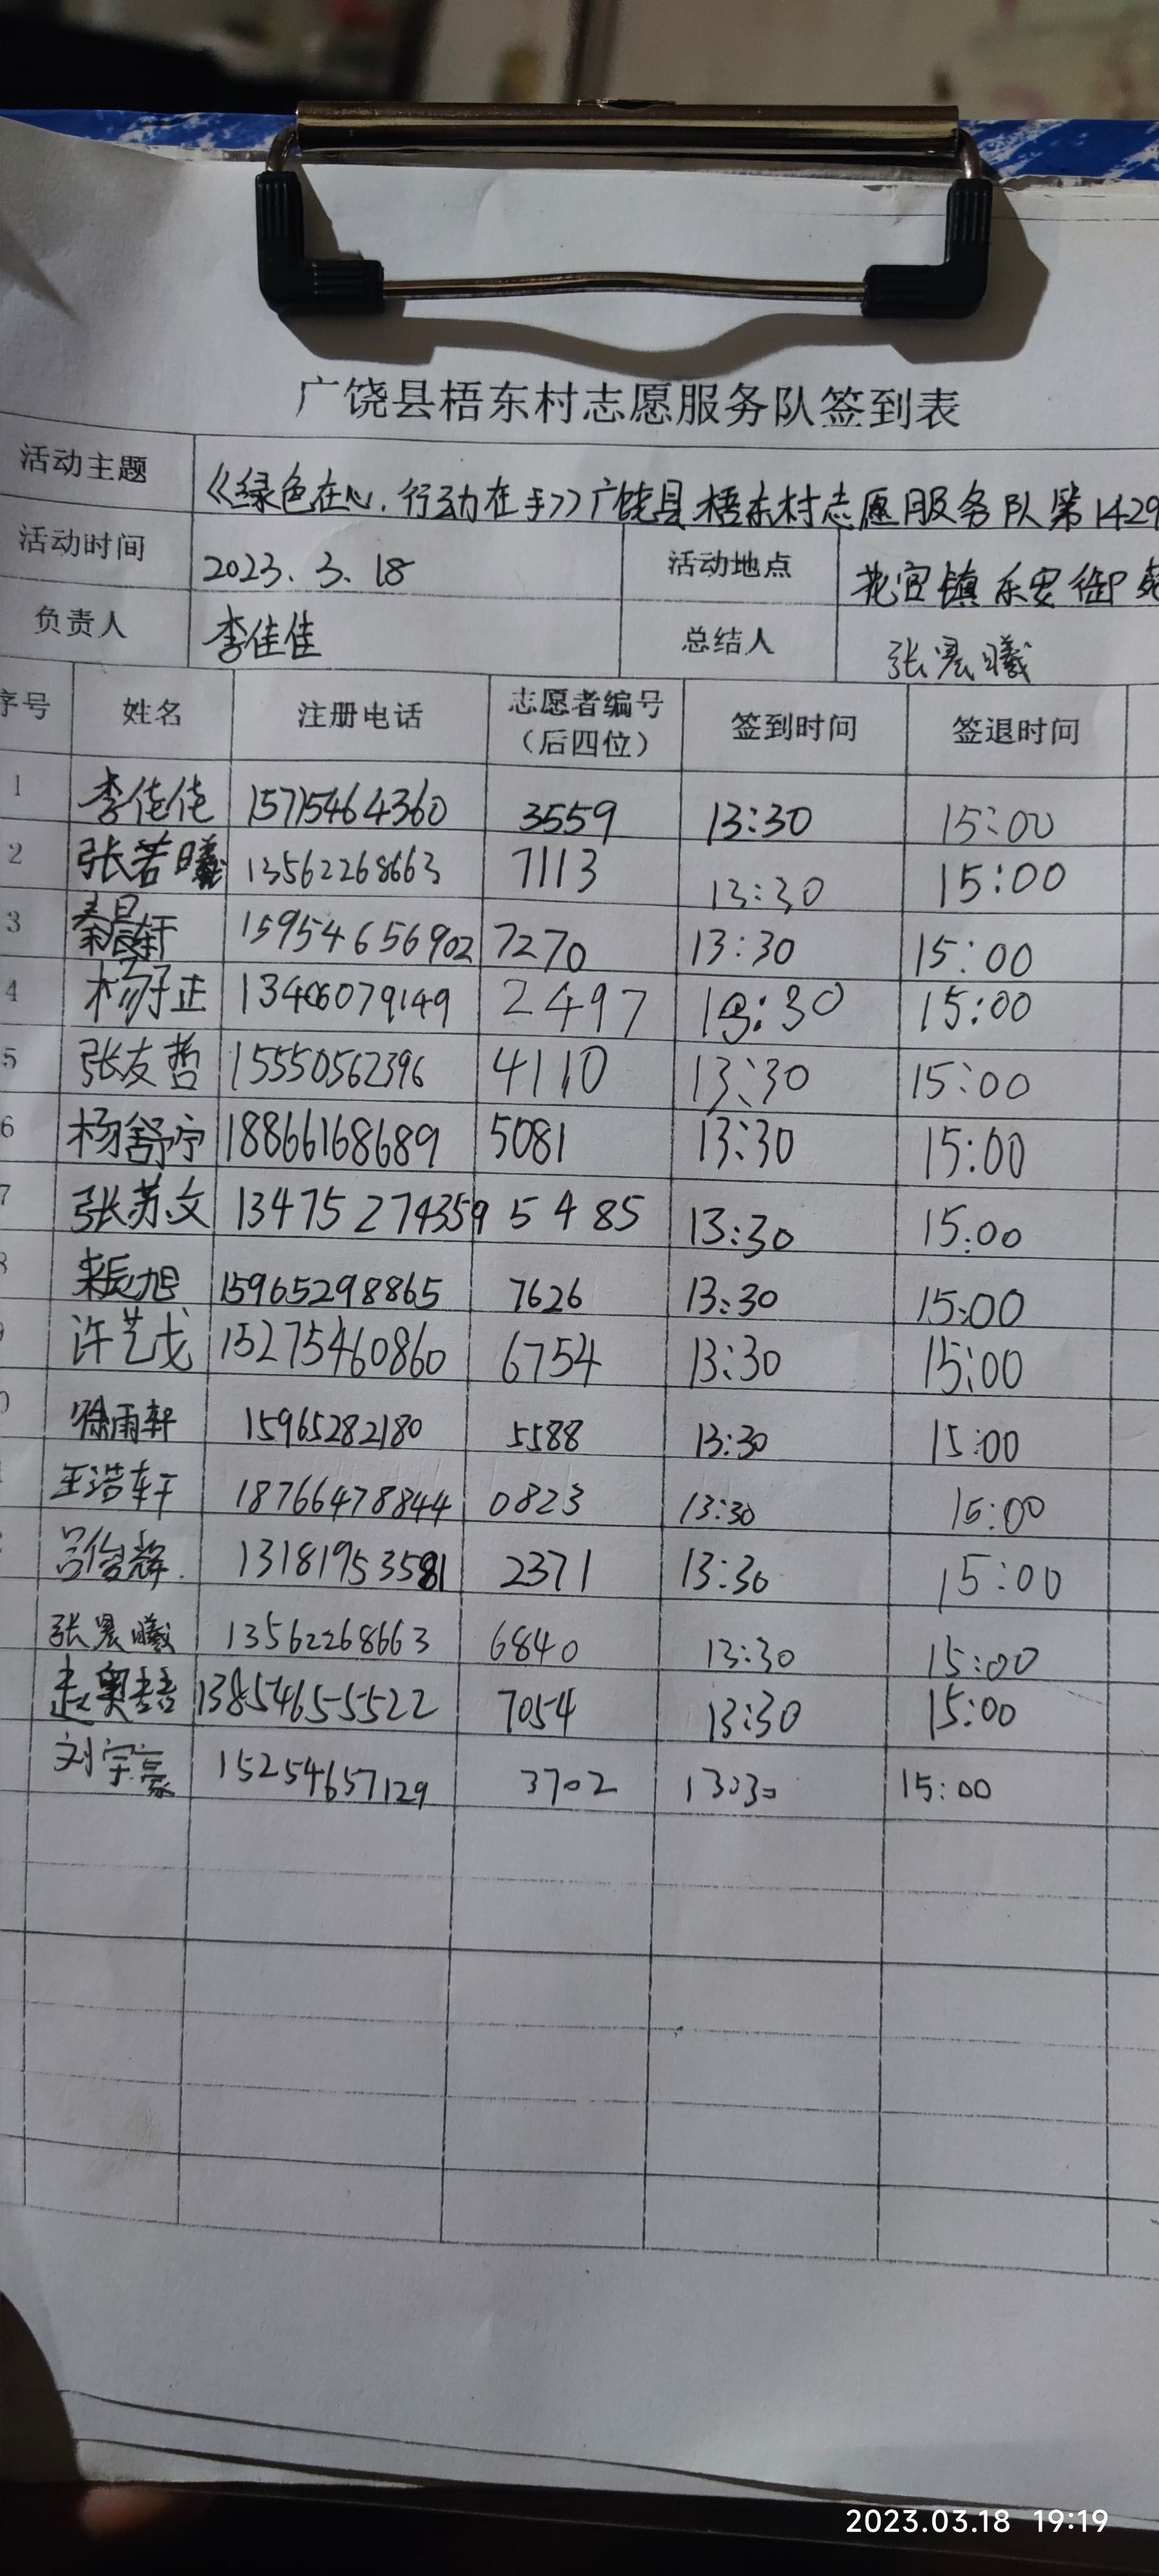 广饶县梧东村志愿服务队签到表
活动主题 《绿色在心,行动在手》广饶县梧东村志愿服务队第1429
活动时间 2023.3.18 活动地点 花官镇乐安御苑
负责人 李佳佳 总结人 张晨曦
序号 姓名 注册电话 志愿者编号（后四位） 签到时间 签退时间
1 李佳佳 15715464360 3559 13:30 15:00
2 张若曦 13562268663 7113 13:30 15:00
3 秦晨轩 15954656902 7270 13:30 15:00
4 杨子正 13406079149 2497 13:30 15:00
5 张友哲 15550562396 4110 13:30 15:00
6 杨舒宁 18866168689 5081 13:30 15:00
7 张苏文 13475274359 5485 13:30 15:00
辰旭 15965298865 7626 13:30 15:00
许艺戈 15275460860 6754 13:30 15:00
徐雨轩 15965282180 5588 13:30 15:00
王浩轩 18766478844 0823 13:30 15:00
吕俊辉 13181953581 2371 13:30 15:00
张晨曦 13562268663 6840 13:30 15:00
赵奥 13854655522 7054 13:30 15:00
刘宇豪 15254657129 3702 13:30 15:00
2023.03.18 19:19